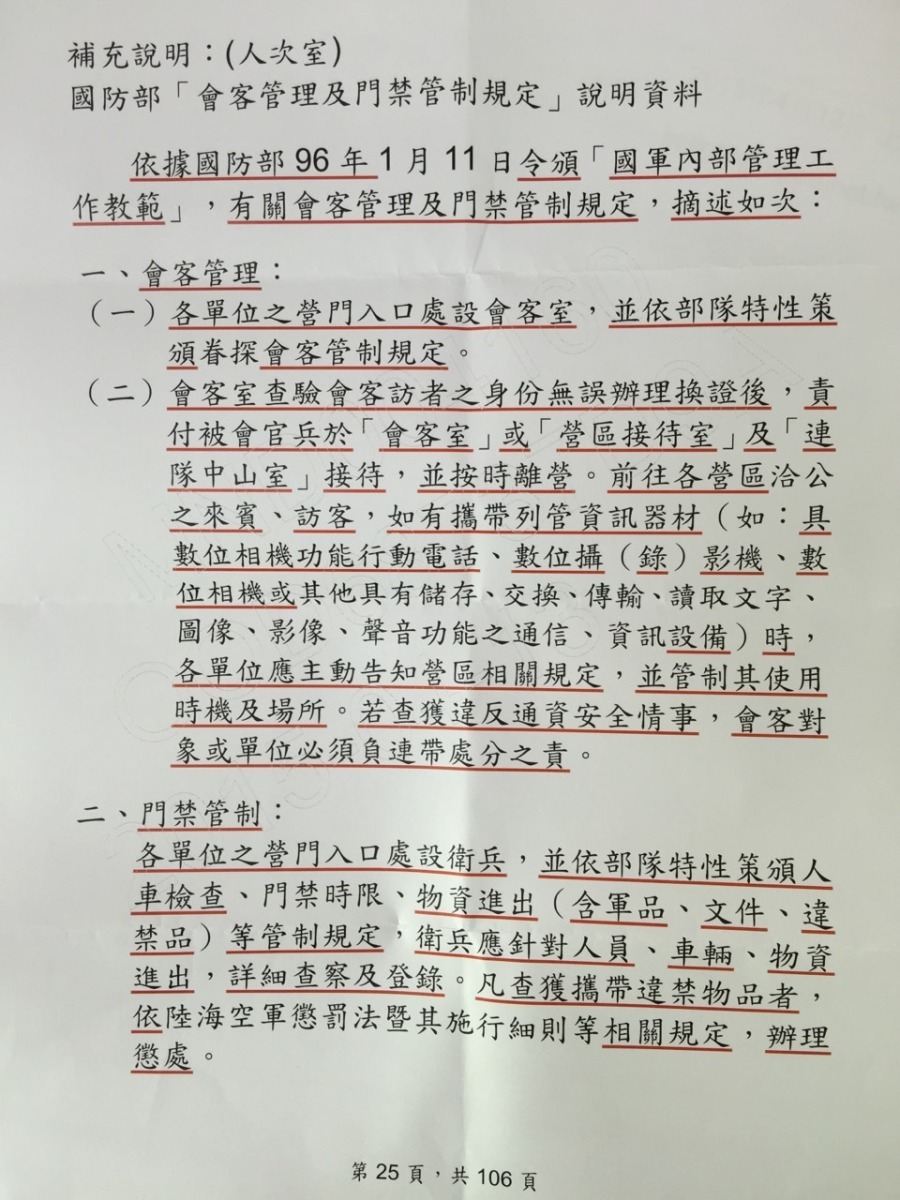 補充說明：(人次室)
國防部「會客管理及門禁管制規定」說明資料
依據國防部 96 年 1 月 11 日令頒「國軍內部管理工
作教範」，有關會客管理及門禁管制規定，摘述如次：
一、會客管理：
（一）各單位之營門入口處設會客室，並依部隊特性策
頒眷探會客管制規定。
（二）會客室查驗會客訪者之身份無誤辦理換證後，責
付被會官兵於「會客室」或「營區接待室」及「連
隊中山室」接待，並按時離營。前往各營區洽公
之來賓、訪客，如有攜帶列管資訊器材（如：具
數位相機功能行動電話、數位攝（錄）影機、數
位相機或其他具有儲存、交換、傳輸、讀取文字、
圖像、影像、聲音功能之通信、資訊設備）時，
各單位應主動告知營區相關規定，並管制其使用
時機及場所。若查獲違反通資安全情事，會客對
象或單位必須負連帶處分之責。
二、門禁管制：
各單位之營門入口處設衛兵，並依部隊特性策頒人
車檢查、門禁時限、物資進出（含軍品、文件、違
禁品）等管制規定，衛兵應針對人員、車輛、物資
進出，詳細查察及登錄。凡查獲攜帶違禁物品者，
依陸海空軍懲罰法暨其施行細則等相關規定，辦理
懲處。
第 25 頁，共 106 頁